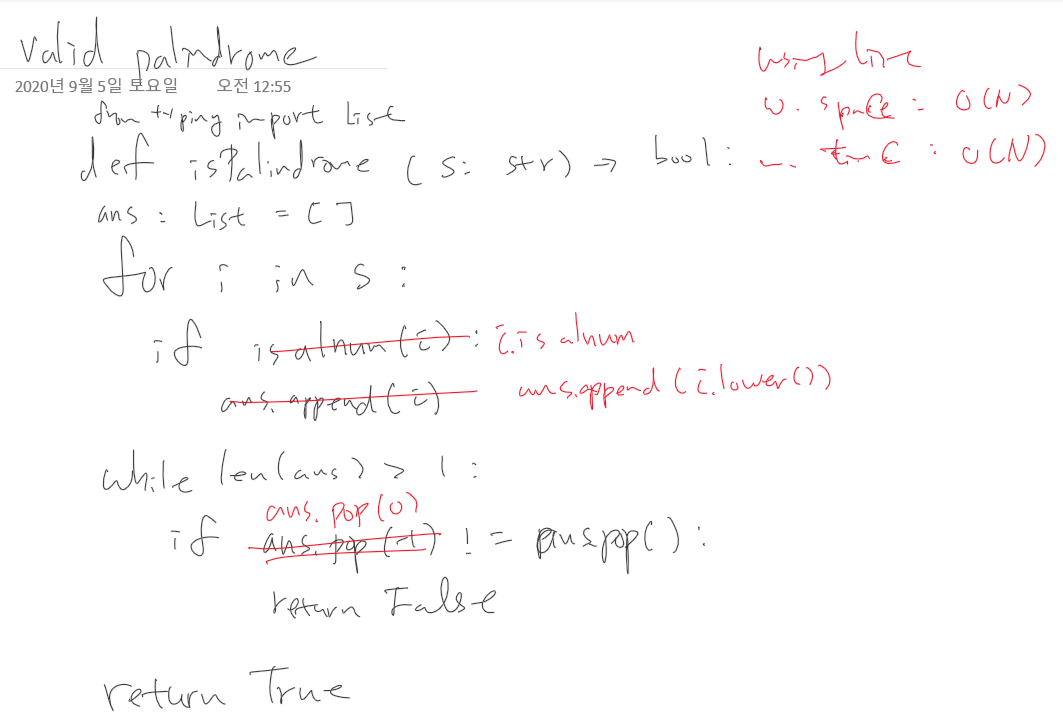 valid palindrome
2020년 9월 5일 토요일 오전 12:55
using list
w. space : O(N)
w. time : O(N)
from typing import List
def isPalindrome (s: str) → bool:
ans : List = []
for i in s :
if isalnum(i) : i.isalnum
ans.append(i) ans.append(i.lower())
while len(ans) > 1 :
ans.pop(0)
if ans.pop(-1) != ans.pop() :
return False
return True